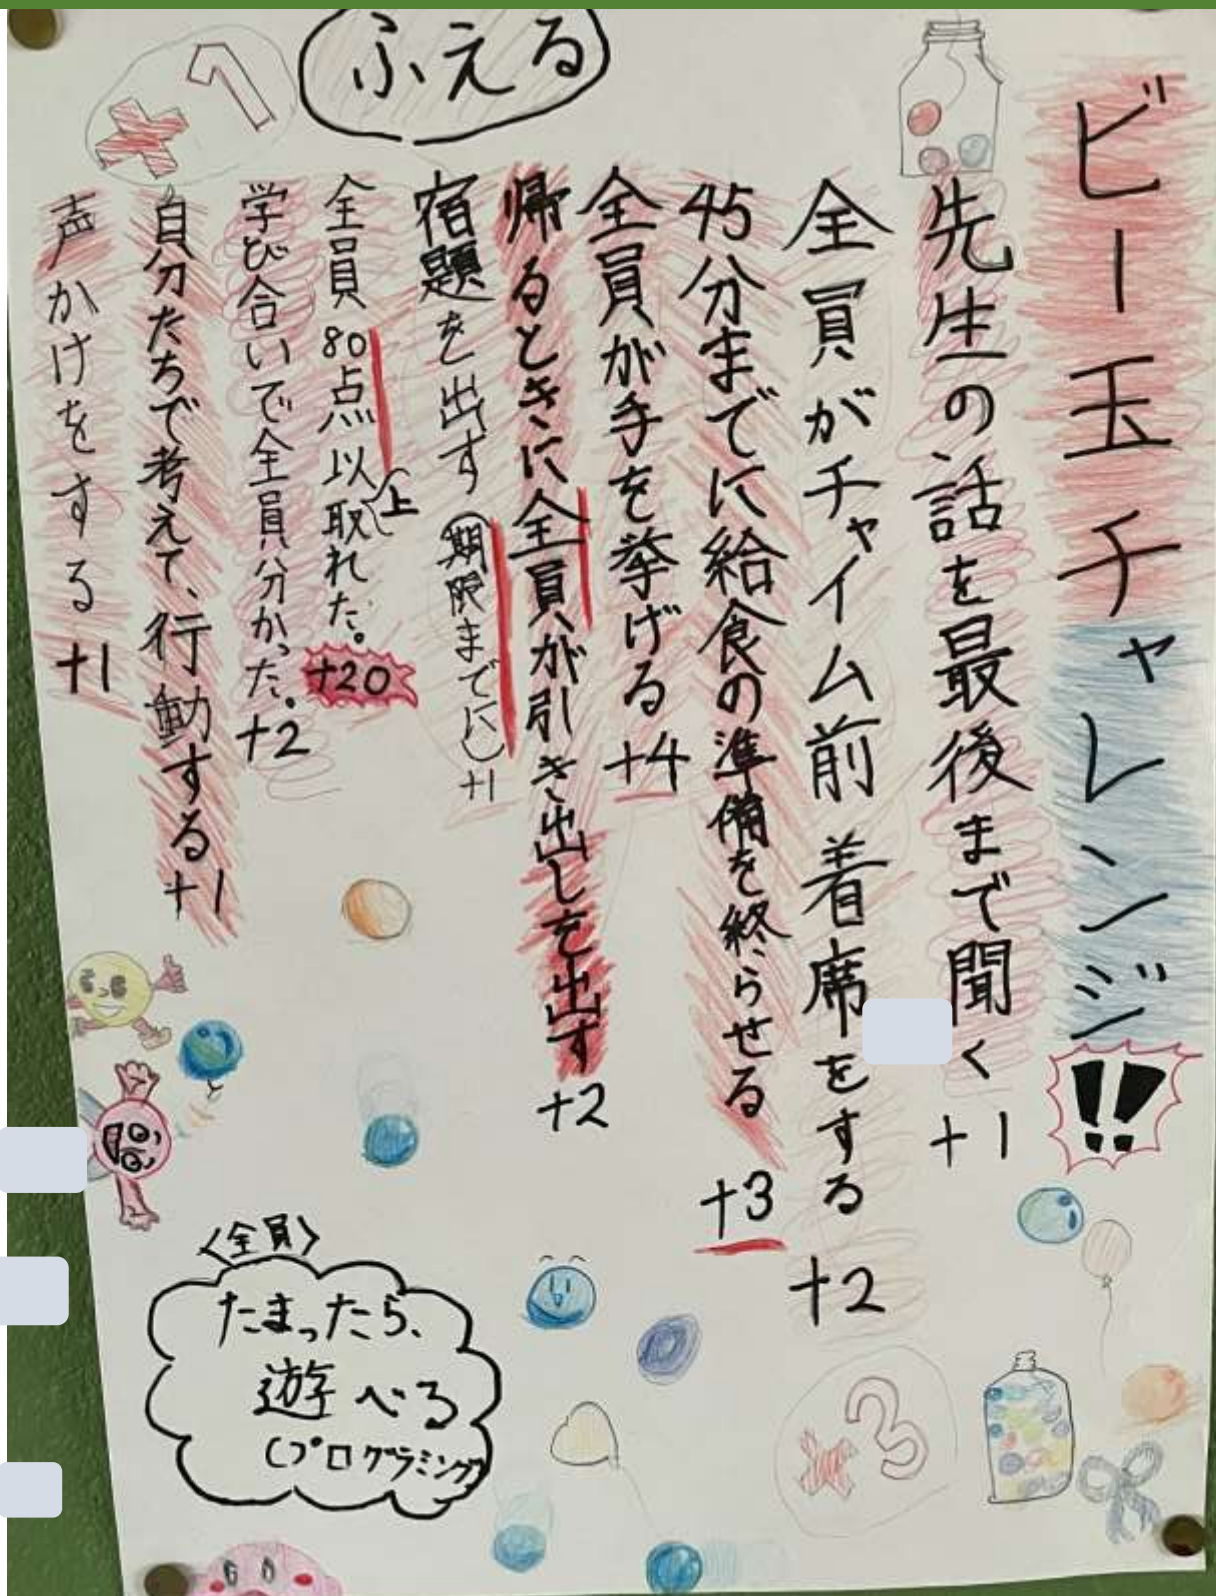 ビー玉チャレンジ!!
ふえる
先生の話を最後まで聞く +1
全員がチャイム前着席をする +2
45分までに給食の準備を終らせる +3
全員が手を挙げる +4
帰るときに全員が引き出しを出す +2
宿題を出す(期限までに) +1
全員80点以上取れた。 +20
学び合いで全員分かった。 +2
自分たちで考えて、行動する +1
声かけをする +1
+1
×3
〈全員〉
たまったら、
遊べる
(プログラミング)